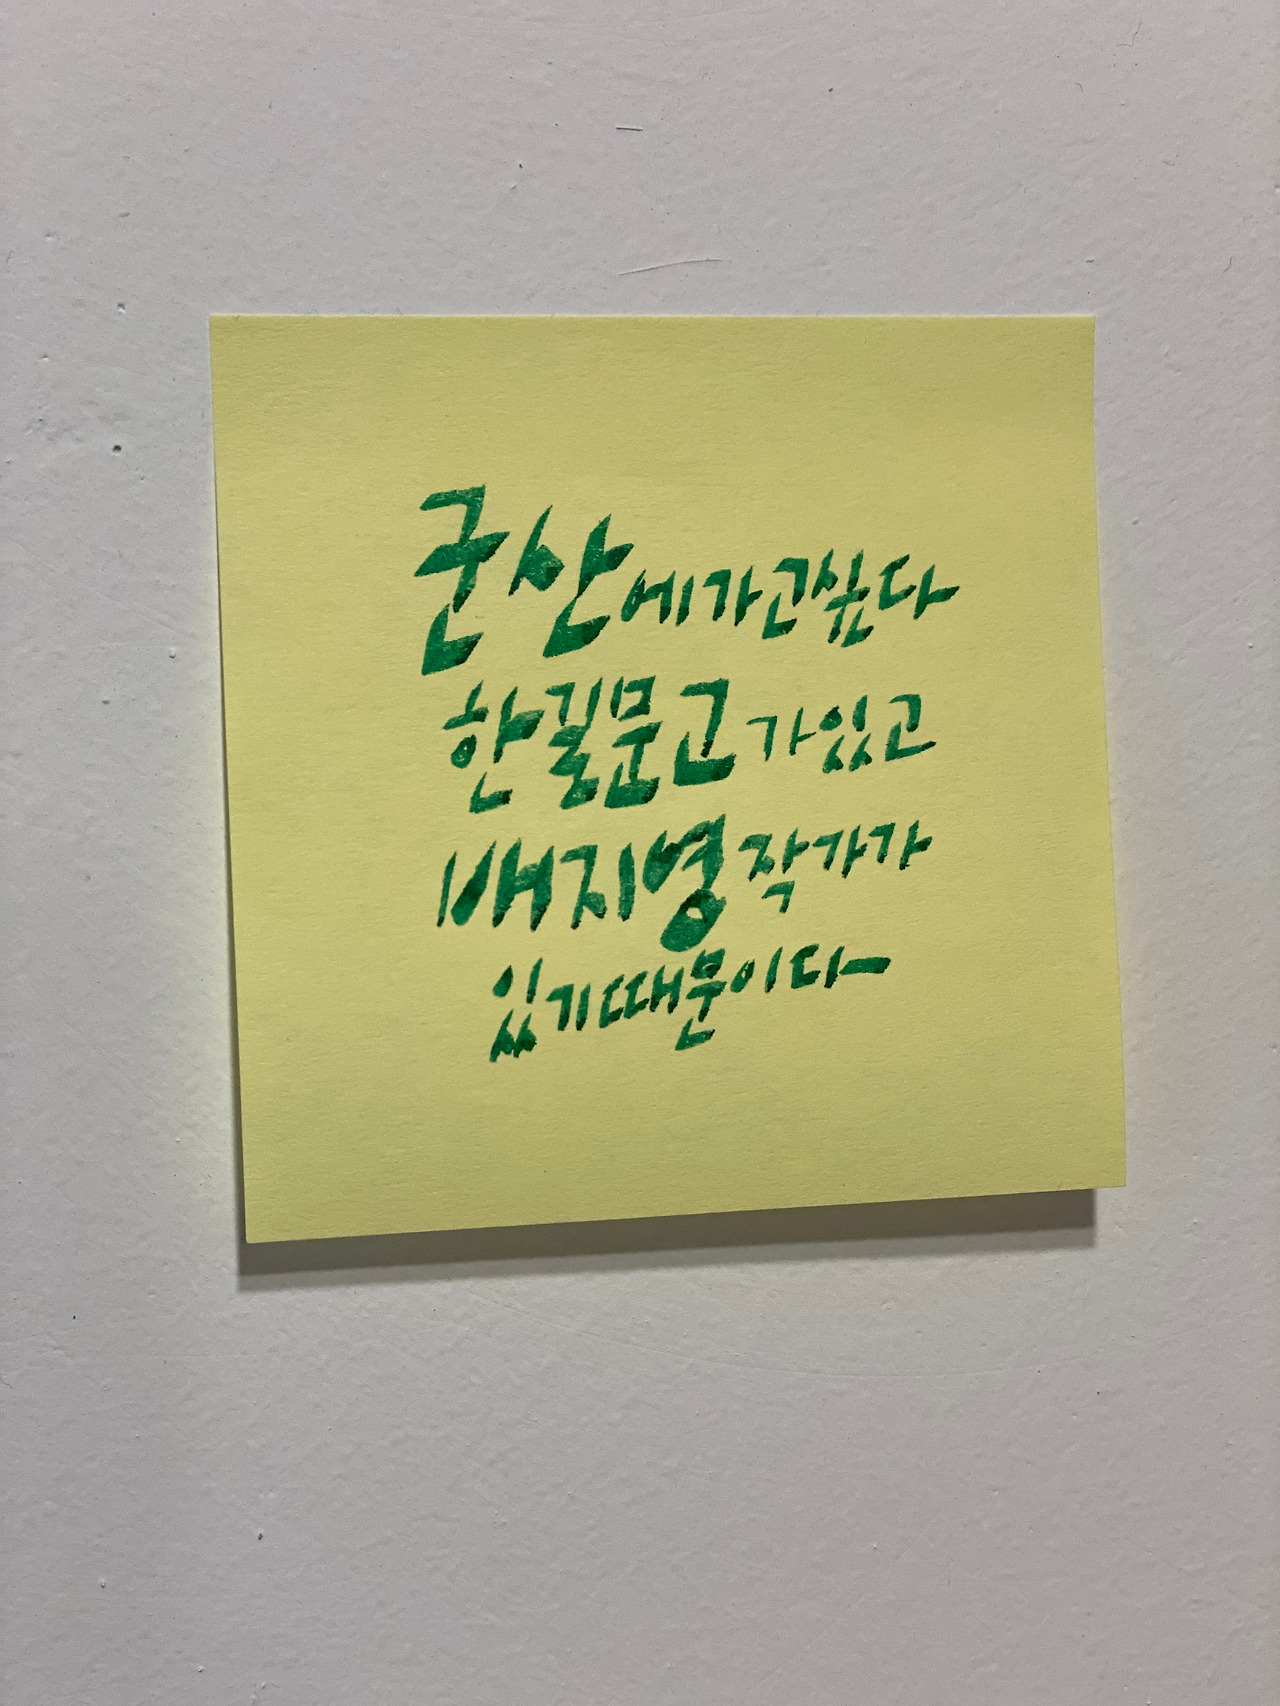 군산에가고싶다
한길문고가있고
배지영작가가
있기때문이다-